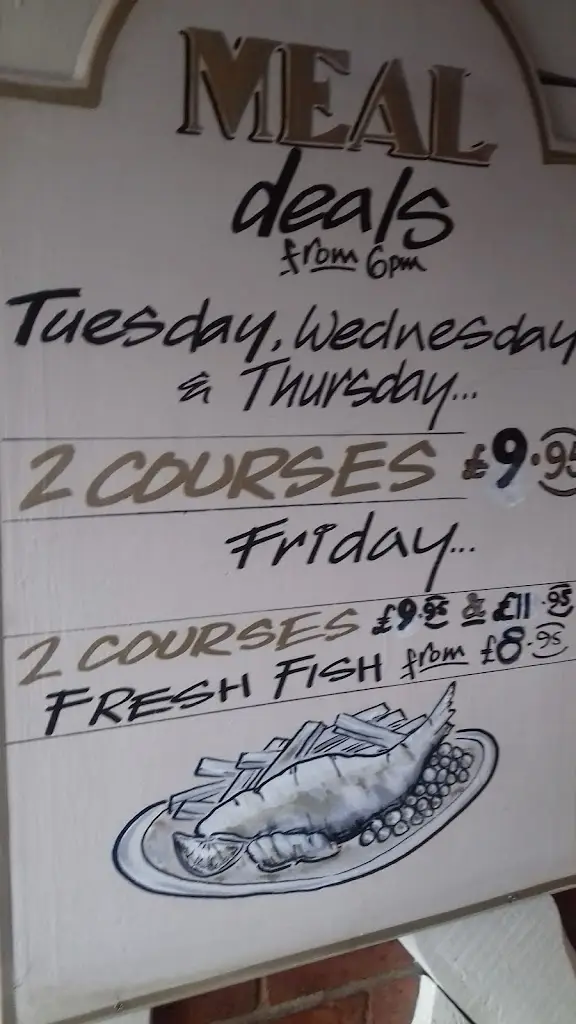 MEAL
deals
from 6pm
Tuesday, Wednesday
& Thursday...
2 COURSES £9.95
Friday...
2 COURSES £9.95 & £11.95
FRESH FISH from £8.95